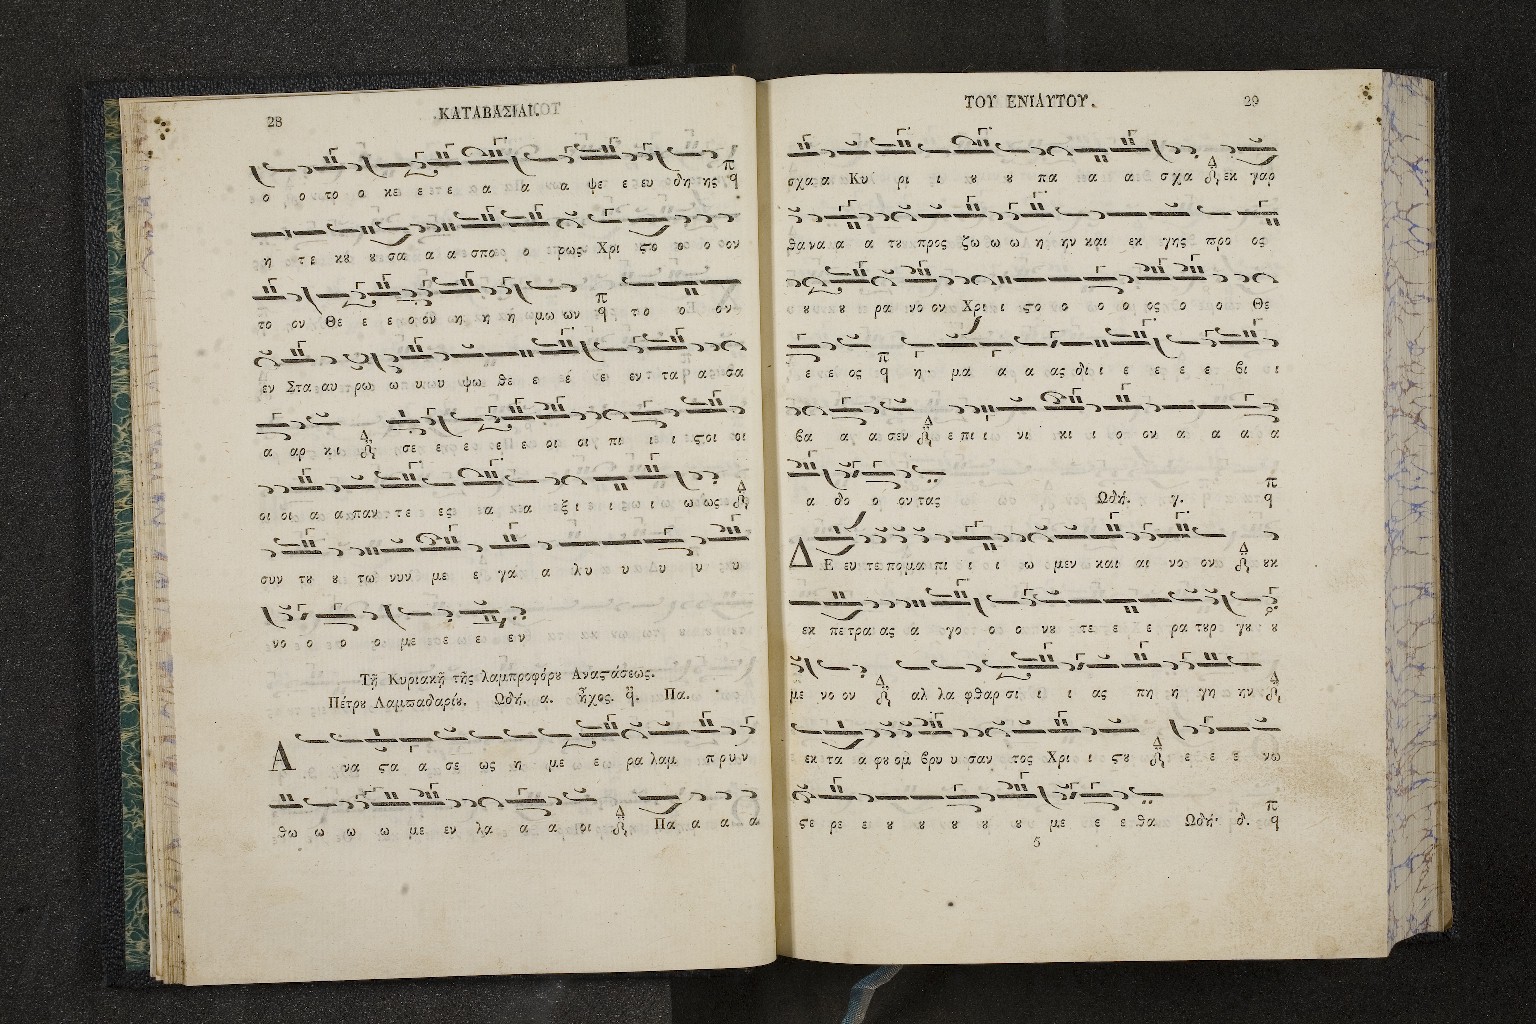 28
ΚΑΤΑΒΑΣΙΑΙ
ο ο το ο κε ε ε ε α α α α ψε ε ευ δη ης π q
η τε κȣ ȣ σα α α σπο ο ρως Χρι ϛο ο ο ον
το ον Θε ε ε ο ον η η η μω ων π q το ο ον
εν Στα αυ ρω ω υ υ υ ψω θε ε ε ε εν τα α σα
α αρ κι Δ σε ε ε ε ε οι οι πι ι ι ϛοι οι
οι οι α α παν τε ε ες ε α κα α εξ ι ε ι ι ω ως Δ
συν τȣ ȣ τω νυν με ε γα α λυ υ υ υ υ
νο ο ο ο με ε ε ε εν
Τῇ Κυριακῇ τῆς λαμπροφόρȣ Αναϛάσεως.
Πέτρȣ Λαμπαδαρίȣ. Ωδή. α. ἦχος. q. Πα.
Α να ϛα α σε ως η με ε ρα λαμ πρυν
θω ω ω ω με εν λα α α οι Δ Πα α α α
ΤΟΥ ΕΝΙΑΥΤΟΥ.
29
σχα α Κυ ρι ι ȣ ȣ πα α α α σχα Δ εκ γαρ
θα να α α τȣ προς ζω ω ω η ην και εκ γης προ ος
ȣ ȣ ρα νο ον Χρι ι ϛο ο ο ο ος ο ο Θε
ε ε ος π q η μα α α ας δι ι ε ε ε ε βι ι
βα α α σεν Δ ε πι ι νι κι ι ο ον α α α α
α δο ο ον τας Ωδή. γ. π q
Δ Ε ευ τε πο μα πι ι ι ω μεν και αι νο ον Δ ȣκ
εκ πε τρα ας α γο ο ο νȣ τε ε ε ρα τȣρ γȣ ȣ
με νο ον Δ αλ λα φθαρ σι ι ι ας πη η γη ην Δ
εκ τα α φȣ ομ βρυ υ σαν τος Χρι ι ϛȣ Δ ε ε ε νω
ϛε ρε ε ȣ ȣ ȣ ȣ ȣ με ε ε θα Ωδή. δ. π q
5